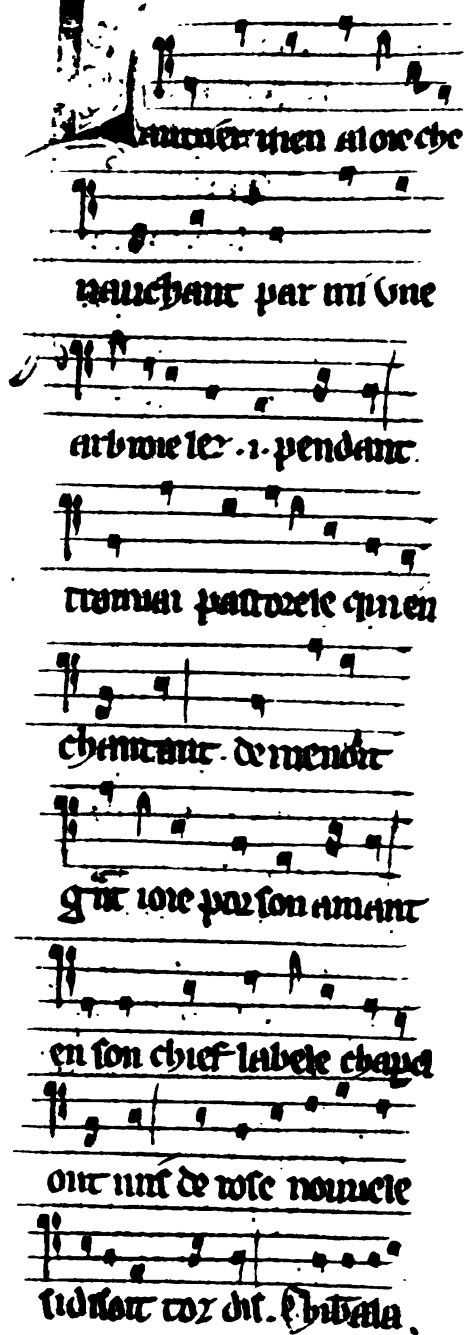 autrier men aloie che
uauchant par mi vne
arbroie lez .i. pendant
trouuai pastorele qui en
chantant. demenoit
gnt ioie por son amant
en son chief la bele chapel
out mis de rose nouuele
si disoit toz dis. Chiba la.